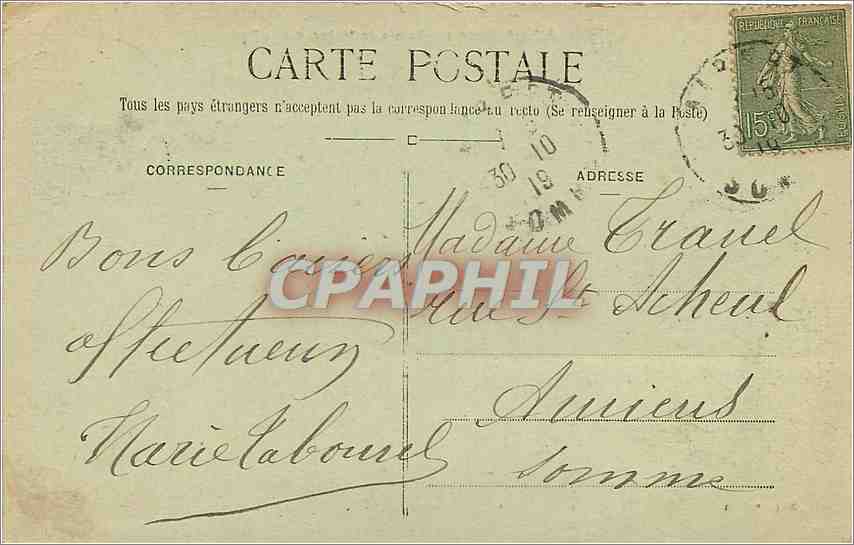 RÉPUBLIQUE FRANÇAISE
15c
CARTE POSTALE
Tous les pays étrangers n'acceptent pas la correspondance au recto (Se renseigner à la Poste)
CORRESPONDANCE
ADRESSE
30 10
19
30 10
19
Bons
affectueux
Marie
Madame
Rue St Acheul
Amiens
Somme
CPAPHIL